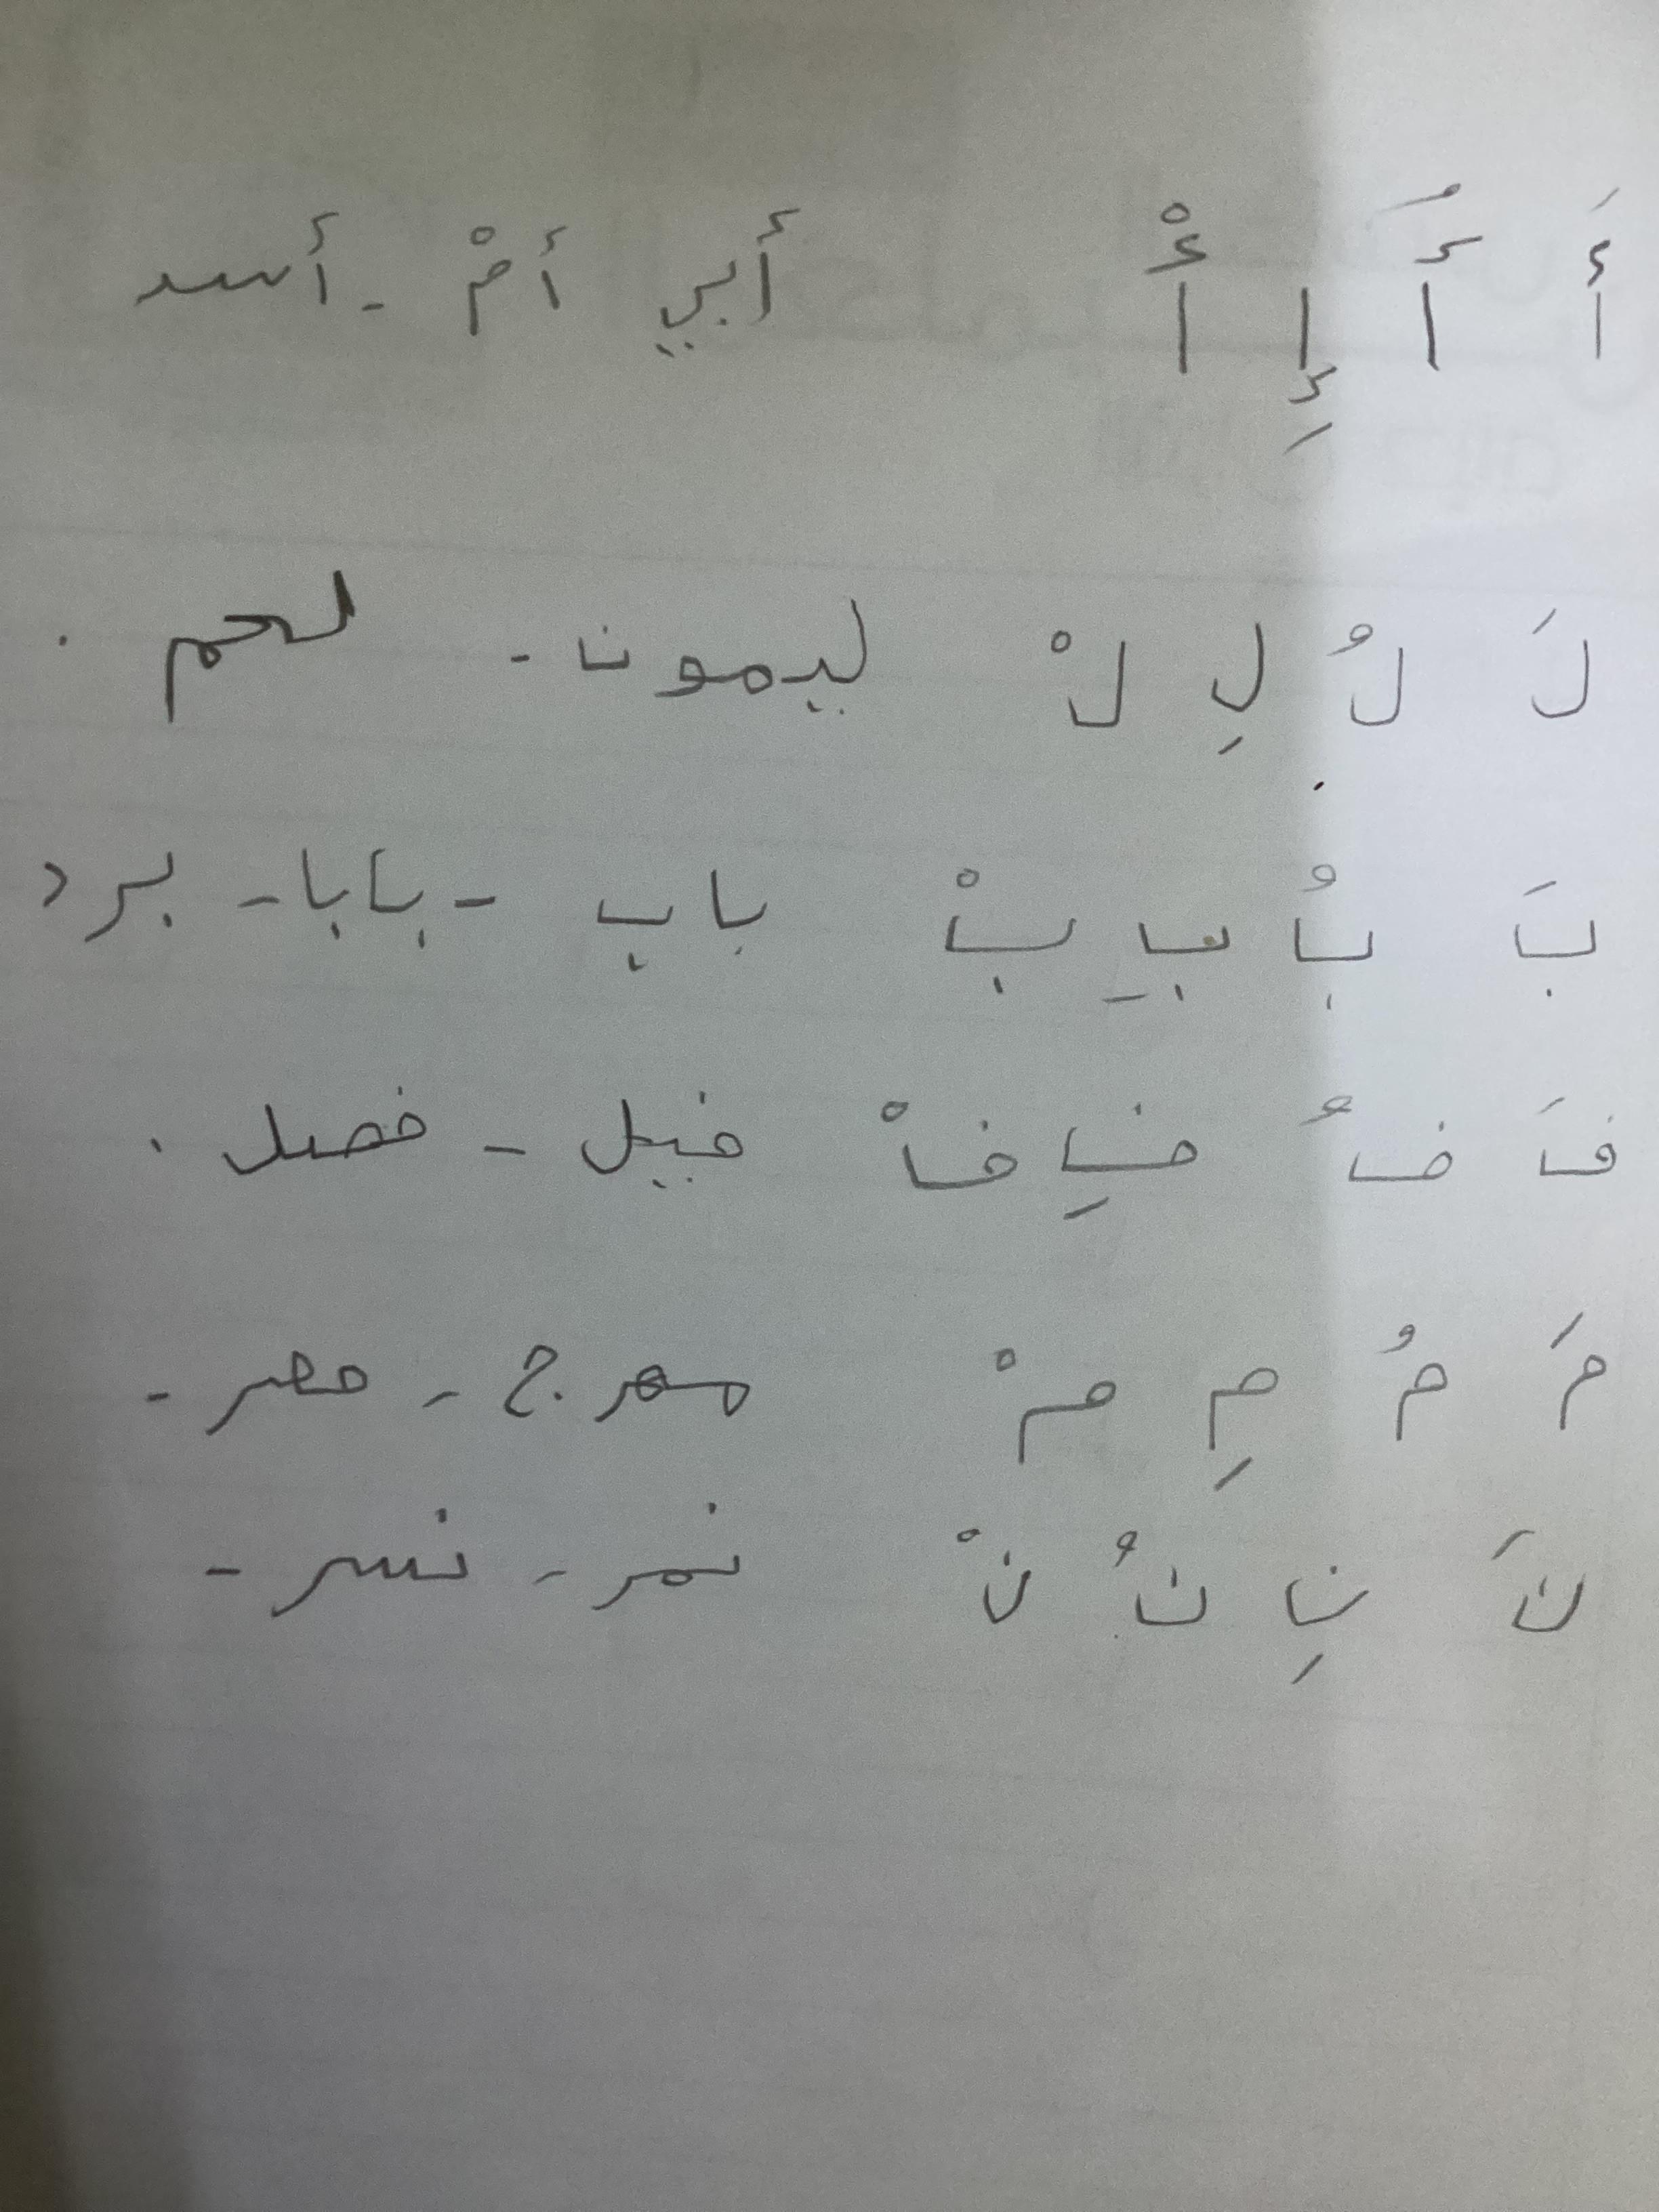 أَ أُ إِ أْ أبي أمْ - أسد
لَ لُ لِ لْ ليمون - لحم .
بَ بُ بِ بْ باب - بابا - برد
فَ فُ فِ فْ فيل - فصل .
مَ مُ مِ مْ مهرج - مصر -
نَ نِ نُ نْ نمر - نسر -